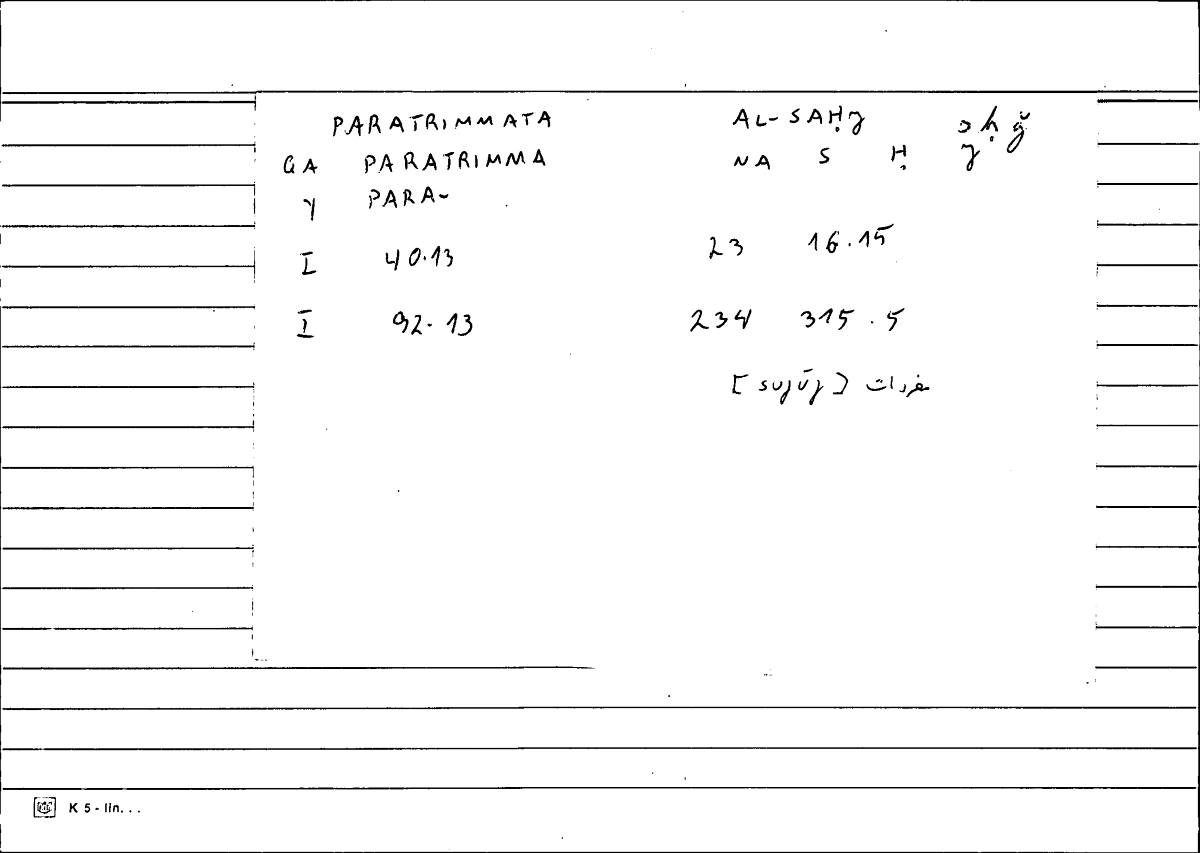 PARATRIMMATA AL-SAḤJ sḥǧ
GA PARATRIMMA NA S Ḥ J
Y PARA-
I 40.13 23 16.15
I 92.13 234 315.5
[sujūj] مفردات
K 5 - lin. . .